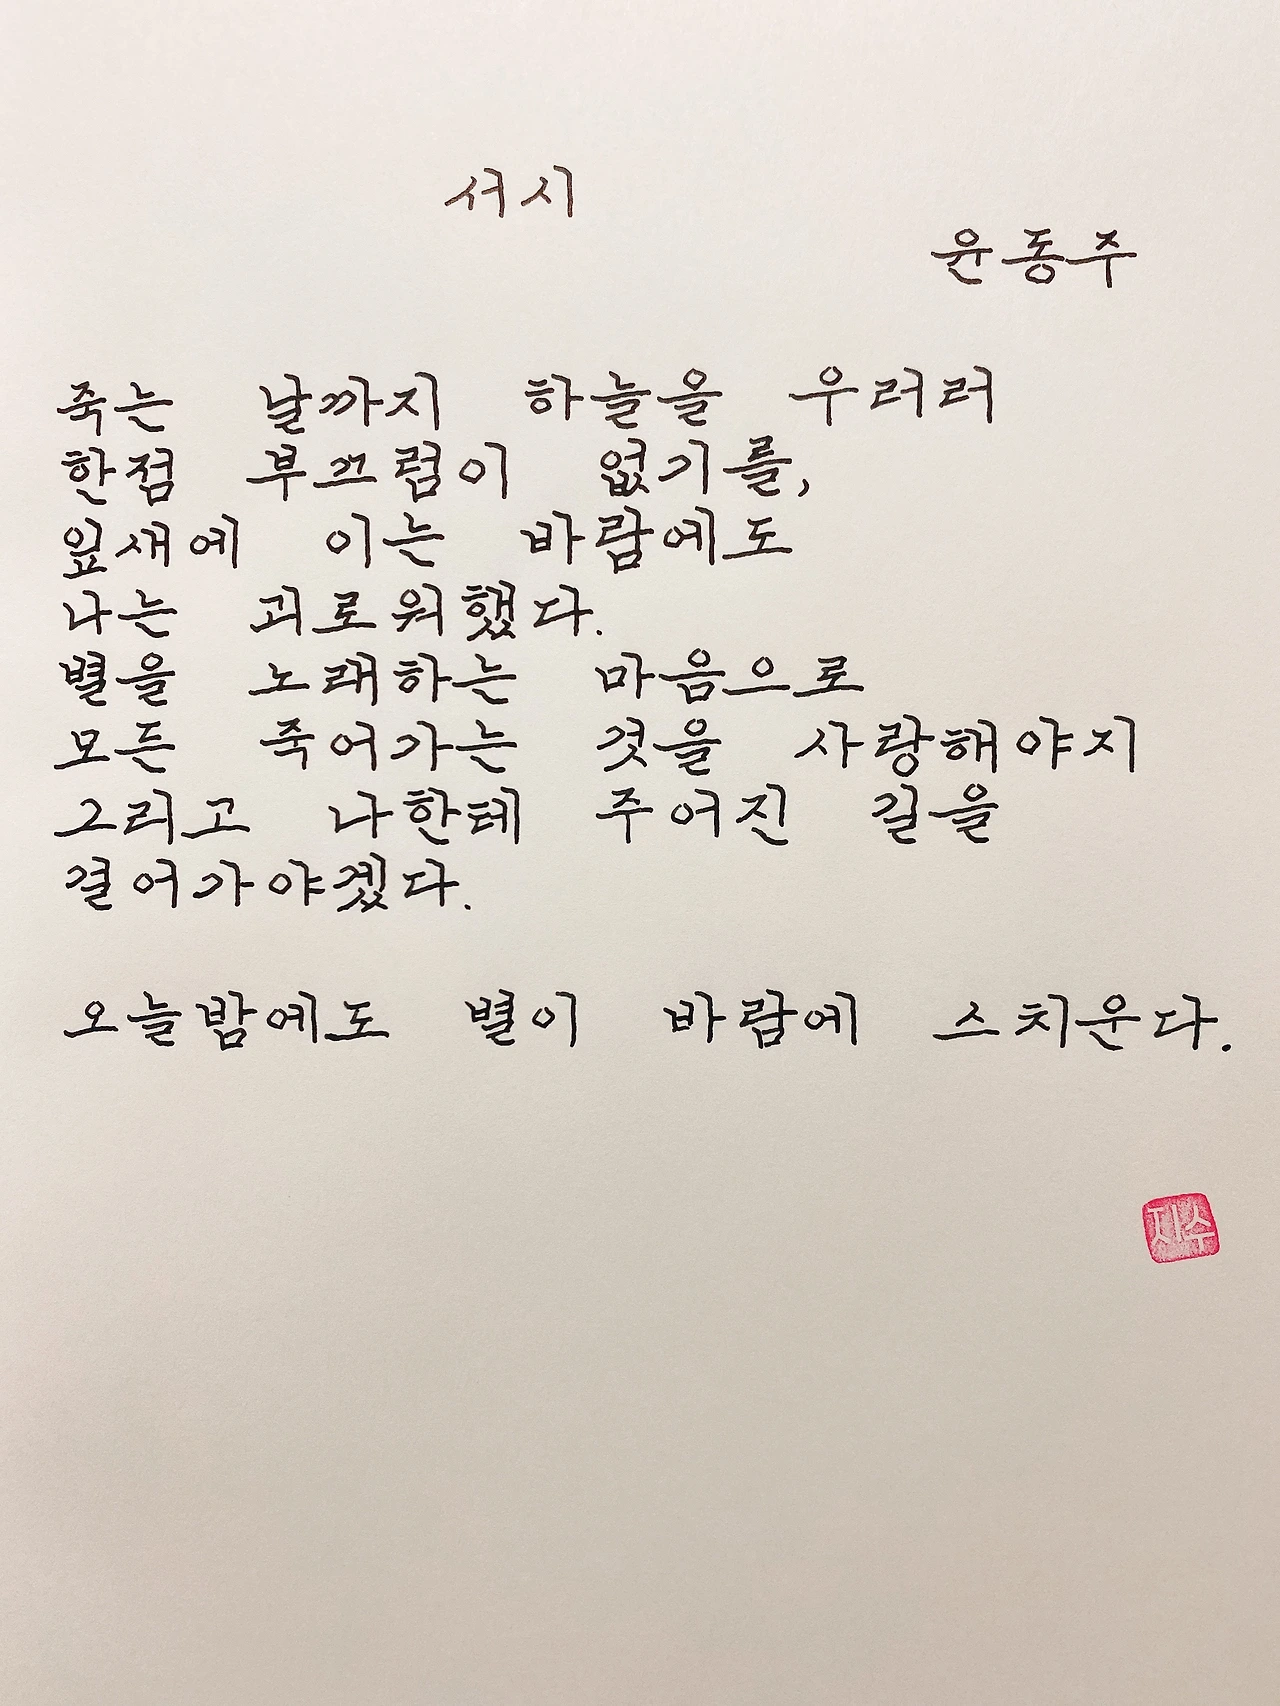 서시
윤동주
죽는 날까지 하늘을 우러러
한점 부끄럼이 없기를,
잎새에 이는 바람에도
나는 괴로워했다.
별을 노래하는 마음으로
모든 죽어가는 것을 사랑해야지
그리고 나한테 주어진 길을
걸어가야겠다.
오늘밤에도 별이 바람에 스치운다.
지수